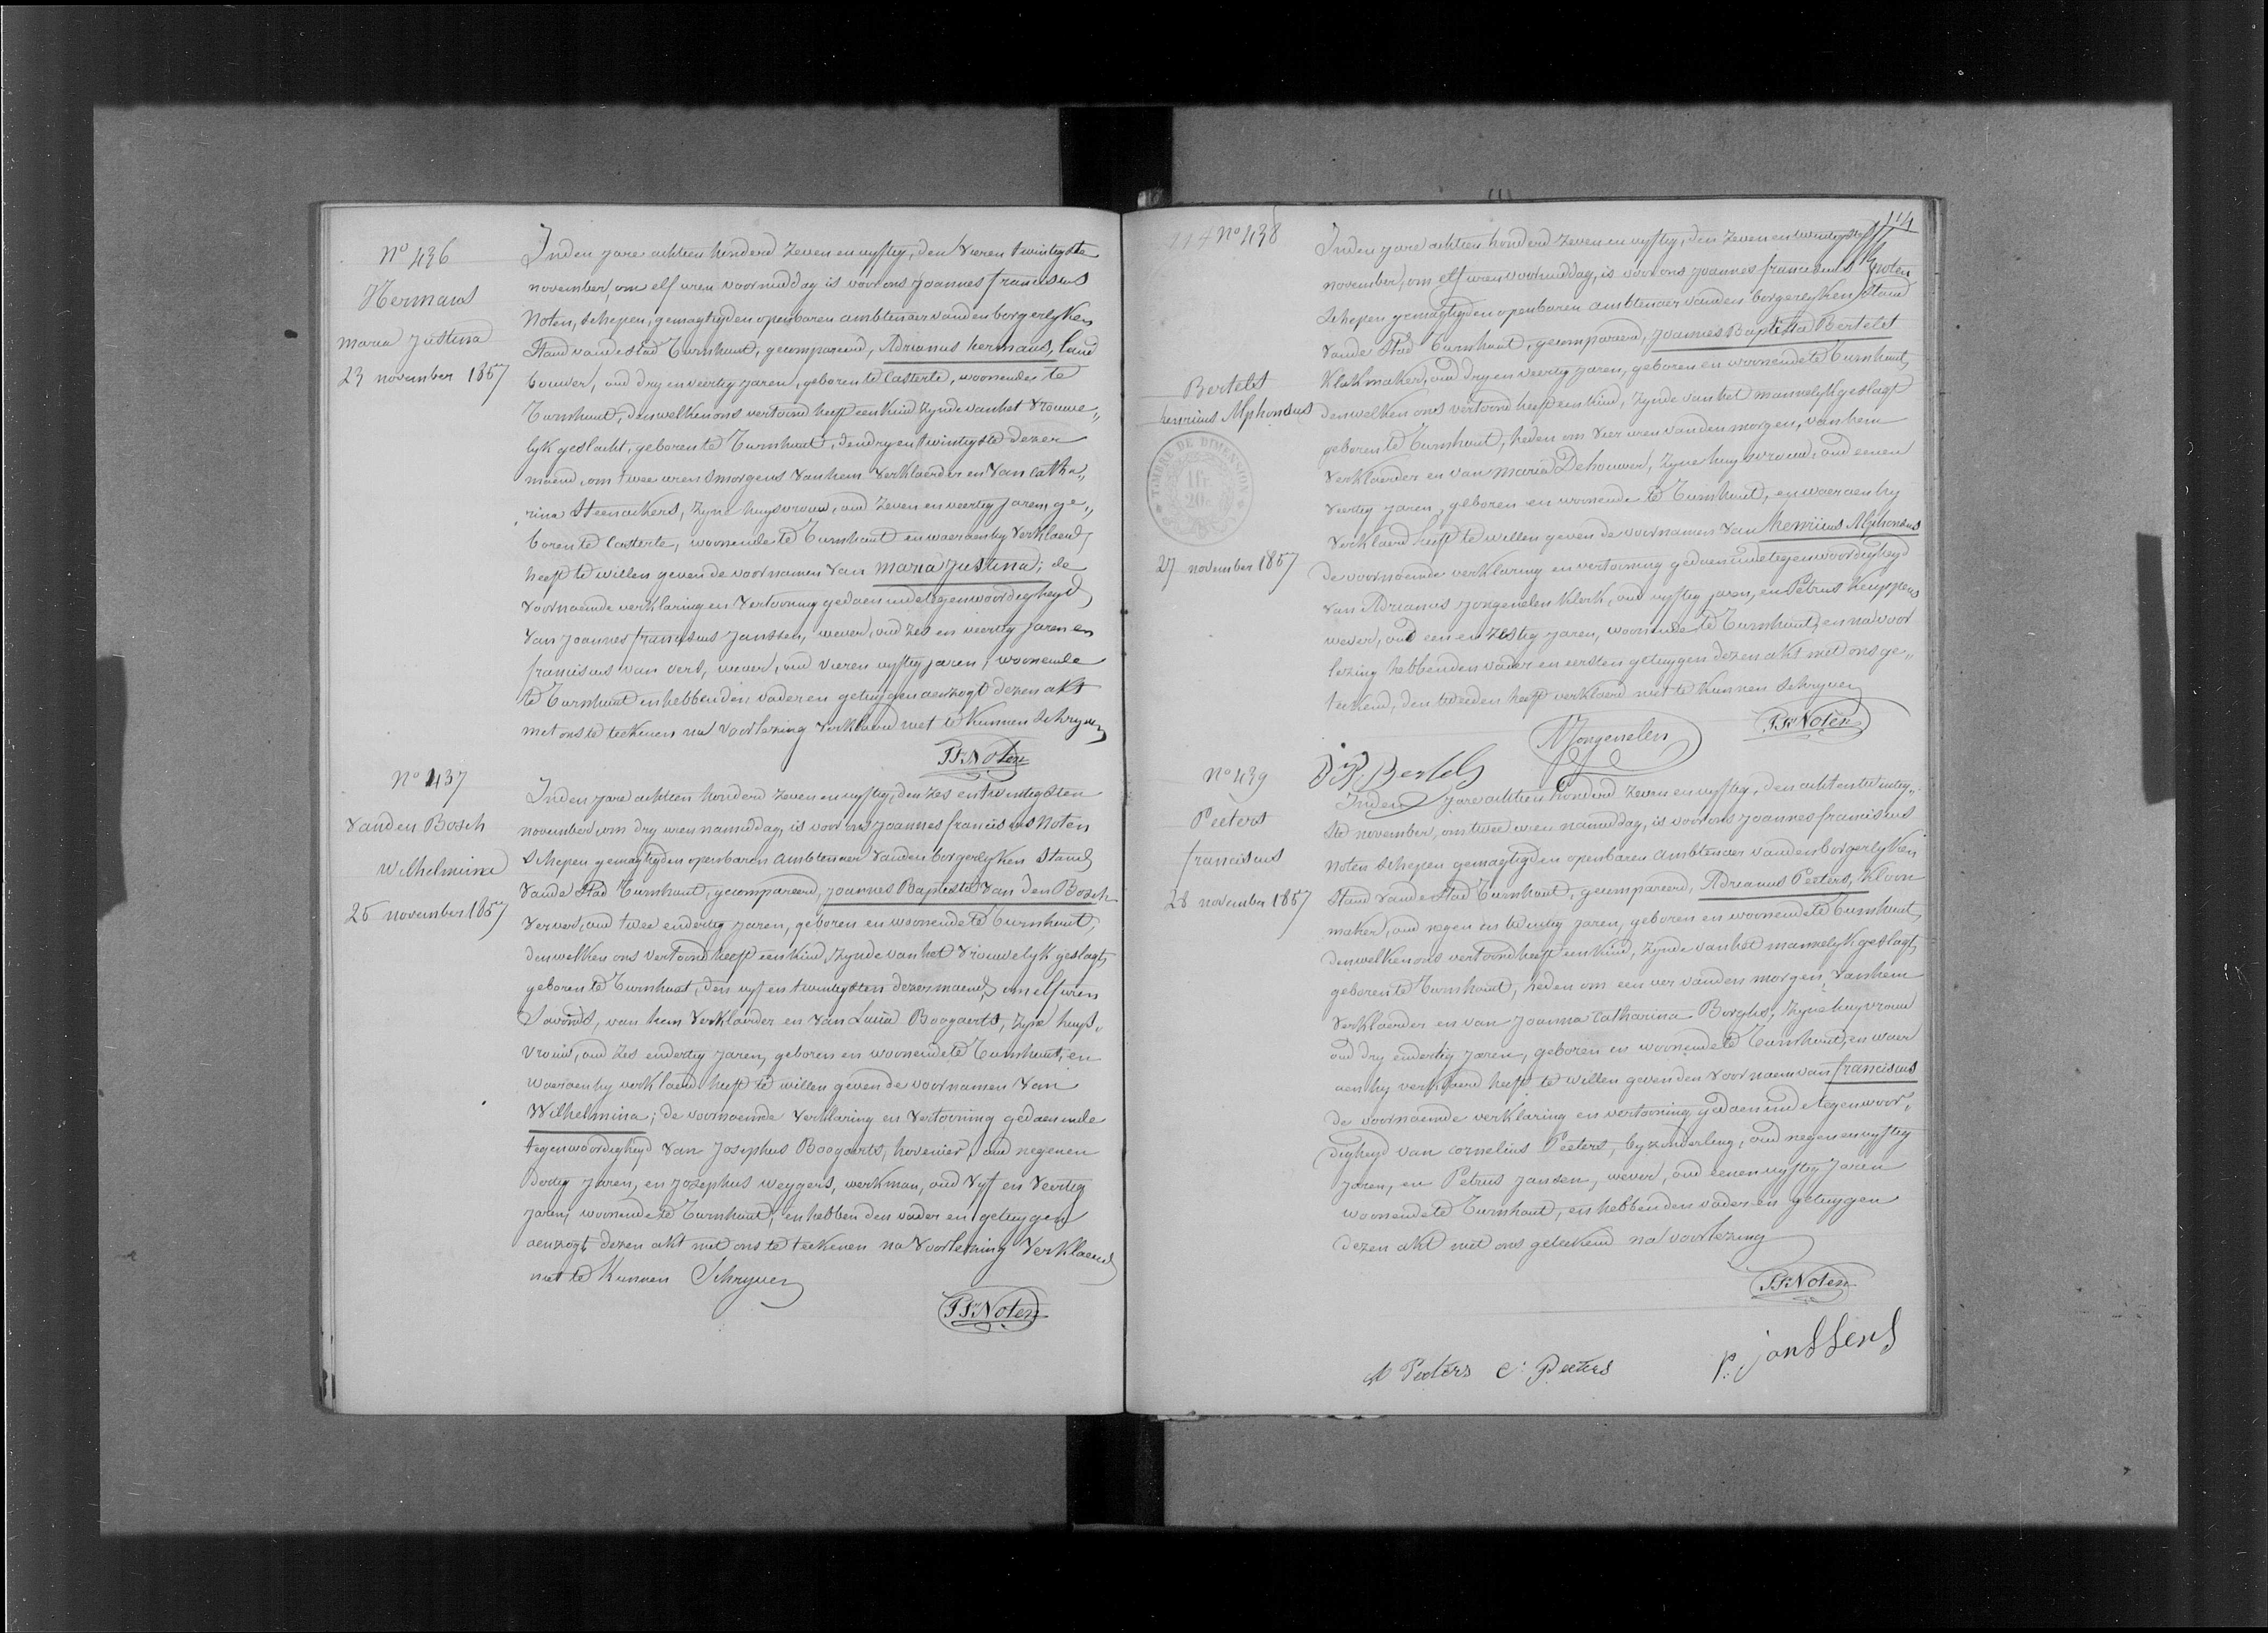 Nº 436
Hermans
Maria Justina
23 november 1857
In den jare achtien honderd zeven en vyftig, den vier en twintigste
november, om elf uren voormiddag is voor ons Joannes franciscus
Noten, schepen, gemagtigden openbaren ambtenaer van den borgerlyken
Stand van de Stad Turnhout, gecompareerd, Adrianus hermans, land
bouwer, oud dry en veertig jaren, geboren te Casterlé, woonende te
Turnhout, den welken ons vertoond heeft een kind zynde van het vrouwe„
lyk geslacht, geboren te Turnhout, den dry en twintigste dezer
maend, om twee uren smorgens van hem verklaerder en van Catha„
rina Steenackers, zyne huysvrouw, oud zeven en veertig jaren, ge„
boren te Casterlé, woonende te Turnhout en waer aen hy verklaerd
heeft te willen geven de voornamen van Maria Justina; de
voornoemde verklaring en vertooning gedaen in de tegenwoordigheyd
van Joannes franciscus Janssen, wever, oud zes en veertig jaren en
franciscus van oers, wever, oud vier en vyftig jaren, woonende
te Turnhout en hebben den vader en getuygen aenzogt dezen akt
met ons te teekenen na voorlezing verklaerd niet te kunnen schryven
J Fr Noten
Nº 437
Vanden Bosch
Wilhelmina
25 november 1857
In den jare achtien honderd zeven en vyftig, den zes en twintigsten
november om dry uren namiddag, is voor ons Joannes franciscus Noten
Schepen gemagtigden openbaren ambtenaer van den borgerlyken Stand
van de Stad Turnhout, gecompareerd, Joannes Baptista Van den Bosch
verver, oud twee en dertig jaren, geboren en woonende te Turnhout,
den welken ons vertoond heeft een kind, zynde van het vrouwelyk geslagt,
geboren te Turnhout, den vyf en twintigsten dezer maend, om elf uren
S'avonds, van hem verklaerder en van Lucia Boogaerts, zyne huys„
vrouw, oud zes en dertig jaren, geboren en woonende te Turnhout, en
waer aen hy verklaerd heeft te willen geven de voornamen van
Wilhelmina; de voornoemde verklaring en vertooning gedaen in de
tegenwoordigheyd van Josephus Boogaerts, hovenier, oud negen en
dertig jaren, en Josephus Weygers, werkman, oud vyf en veertig
jaren, woonende te Turnhout, en hebben den vader en getuygen
aenzogt dezen akt met ons te teekenen na voorlezing verklaerd
niet te kunnen Schryven
J Fr Noten
114
114 Nº 438
Bertels
henricus Alphonsus
TIMBRE DE DIMENSION
1fr
20c
27 november 1857
In den jare achtien honderd zeven en vyftig, den zeven en twintigste
november, om elf uren voormiddag, is voor ons Joannes franciscus Noten
Schepen gemagtigden openbaren ambtenaer van den borgerlyken Stand
van de Stad Turnhout, gecompareerd, Joannes Baptista Bertels
Klakmaker, oud dry en veertig jaren, geboren en woonende te Turnhout,
den welken ons vertoond heeft een kind, zynde van het mannelyk geslagt
geboren te Turnhout, heden om vier uren van den morgen, van hem
verklaerder en van Maria Dehouwer, zyne huysvrouw, oud eenen
veertig jaren, geboren en woonende te Turnhout, en waer aen hy
verklaerd heeft te willen geven de voornamen van henricus Alphonsus
de voornoemde verklaring en vertooning gedaen in de tegenwoordigheyd
van Adrianus Jongenelen klerk, oud vyftig jaren, en Petrus Kuyppens
wever, oud een en zestig jaren, woonende te Turnhout, en na voor
lezing hebben den vader en eersten getuygen dezen akt met ons ge„
teekend, den tweeden heeft verklaerd niet te kunnen schryven
J Fr Noten
A Jongenelen
Bertels
Nº 439
Peeters
franciscus
28 november 1857
In den jare achtien honderd zeven en vyftig, den acht en twintig„
ste november, om twee uren namiddag, is voor ons Joannes franciscus
Noten Schepen gemagtigden openbaren ambtenaer van den borgerlyken
Stand van de Stad Turnhout, gecompareerd, Adrianus Peeters, Kloon
maker, oud negen en twintig jaren, geboren en woonende te Turnhout,
den welken ons vertoond heeft een kind, zynde van het mannelyk geslagt,
geboren te Turnhout, heden om een uer van den morgen, van hem
verklaerder en van Joanna Catharina Borghs, zyne huyvrouw
oud dry en dertig jaren, geboren en woonende te Turnhout, en waer
aen hy verklaerd heeft te willen geven den voornaem van franciscus
de voornoemde verklaring en vertooning, gedaen in de tegenwoor„
digheyd van Cornelius Peeters, byzonderling, oud negen en vyftig
jaren, en Petrus Jansen, wever, oud eenen vyftig jaren
woonende te Turnhout, en hebben den vader en getuygen
dezen akt met ons geteekend na voorlezing
J Fr Noten
A Peeters C: Peeters P. janssens